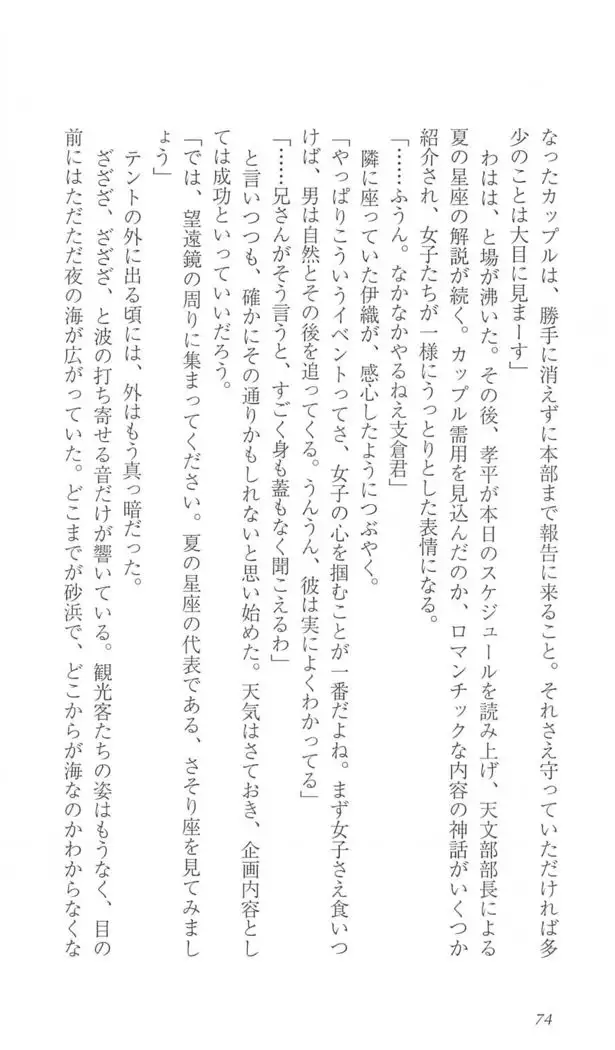 なったカップルは、勝手に消えずに本部まで報告に来ること。それさえ守っていただければ多
少のことは大目に見まーす」
わはは、と場が沸いた。その後、孝平が本日のスケジュールを読み上げ、天文部部長による
夏の星座の解説が続く。カップル需用を見込んだのか、ロマンチックな内容の神話がいくつか
紹介され、女子たちが一様にうっとりとした表情になる。
「……ふうん。なかなかやるねえ支倉君」
隣に座っていた伊織が、感心したようにつぶやく。
「やっぱりこういうイベントってさ、女子の心を掴むことが一番だよね。まず女子さえ食いつ
けば、男は自然とその後を追ってくる。うんうん、彼は実によくわかってる」
「……兄さんがそう言うと、すごく身も蓋もなく聞こえるわ」
と言いつつも、確かにその通りかもしれないと思い始めた。天気はさておき、企画内容とし
ては成功といっていいだろう。
「では、望遠鏡の周りに集まってください。夏の星座の代表である、さそり座を見てみまし
ょう」
テントの外に出る頃には、外はもう真っ暗だった。
ざざざ、ざざざ、と波の打ち寄せる音だけが響いている。観光客たちの姿はもうなく、目の
前にはただただ夜の海が広がっていた。どこまでが砂浜で、どこからが海なのかわからなくな
74